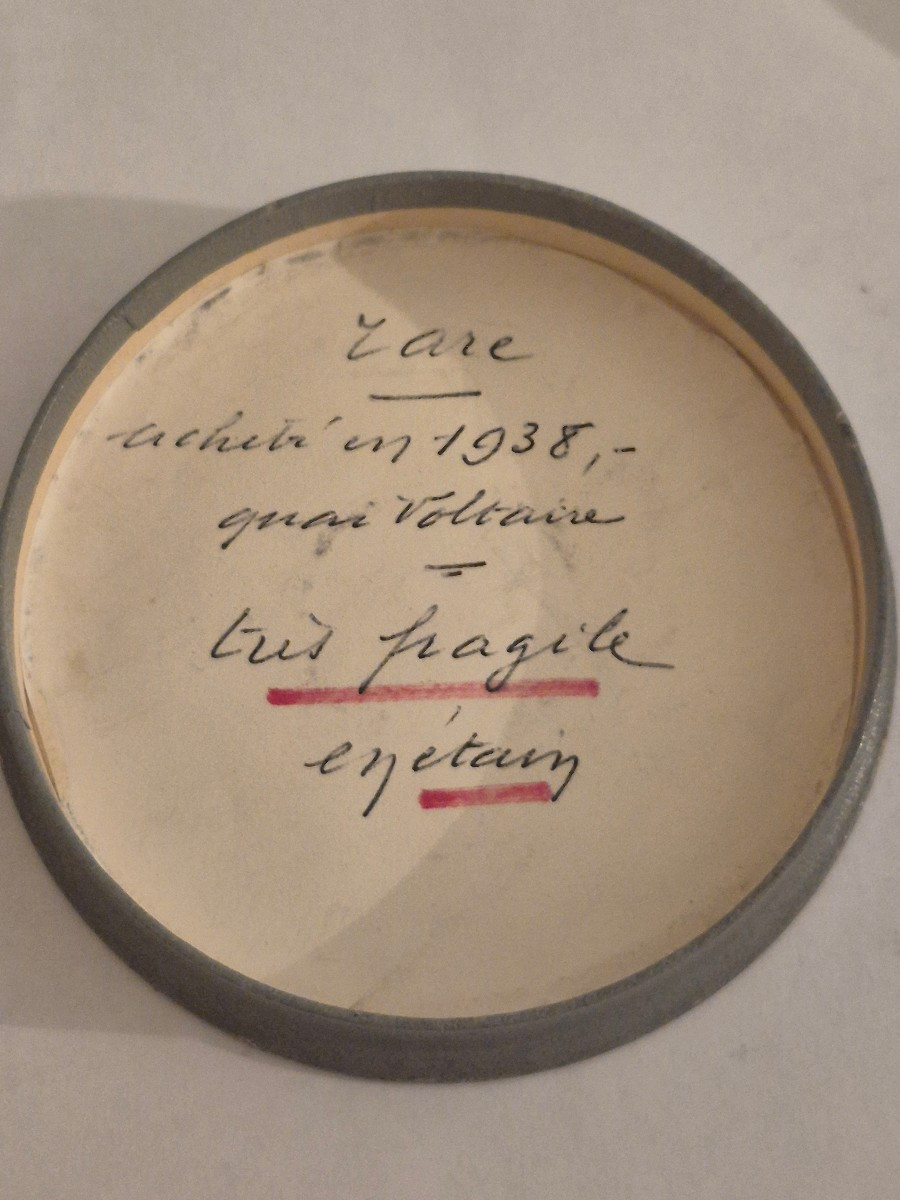 rare
acheté en 1938,-
quai Voltaire
très fragile
en étain